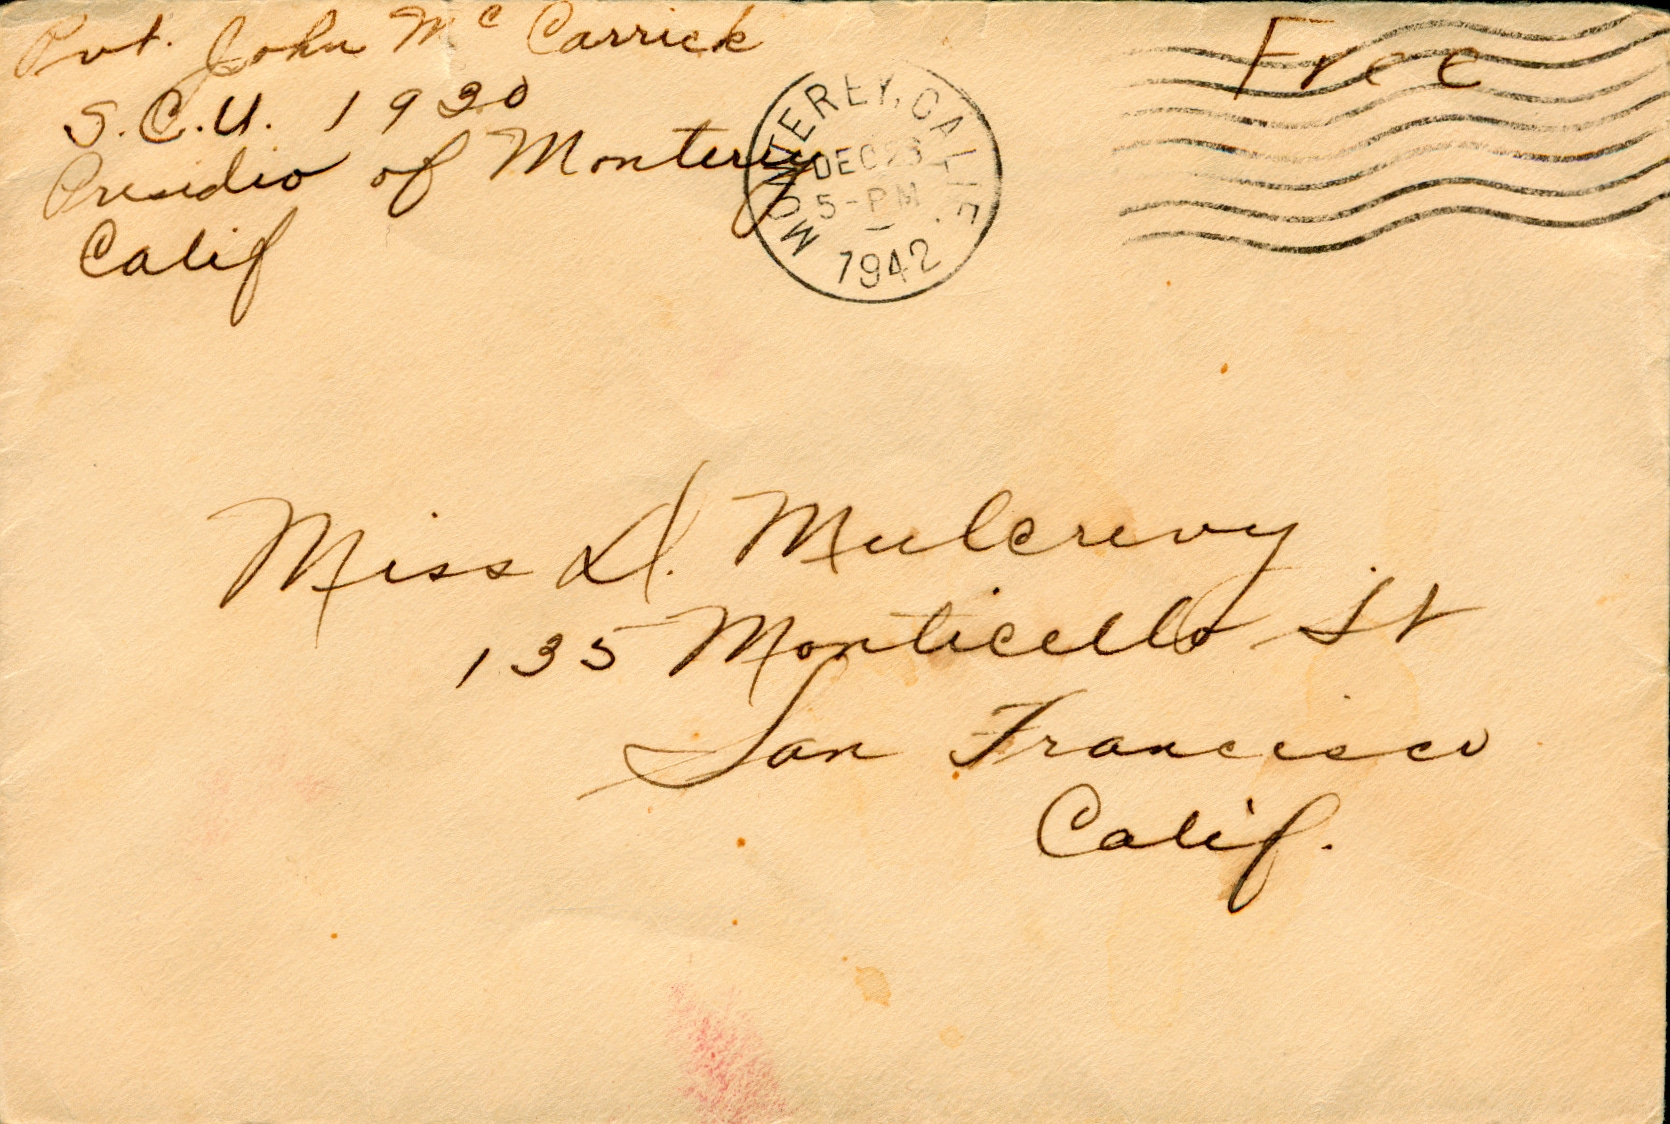 Pvt. John Mc Carrick
S.C.U. 1930
Presidio of Monterey
Calif
MONTEREY, CALIF.
DEC 23
5-PM
1942
Free
Miss D. Mulcrevy
135 Monticello St
San Francisco
Calif.